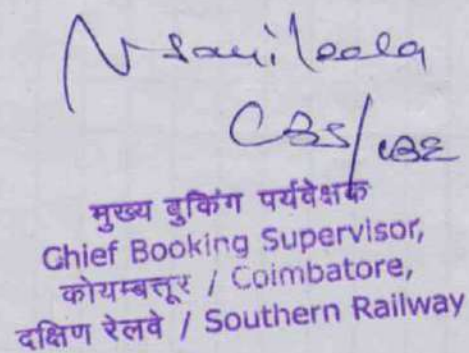 CBS/CBE
मुख्य बुकिंग पर्यवेक्षक
Chief Booking Supervisor,
कोयम्बत्तूर / Coimbatore,
दक्षिण रेलवे / Southern Railway